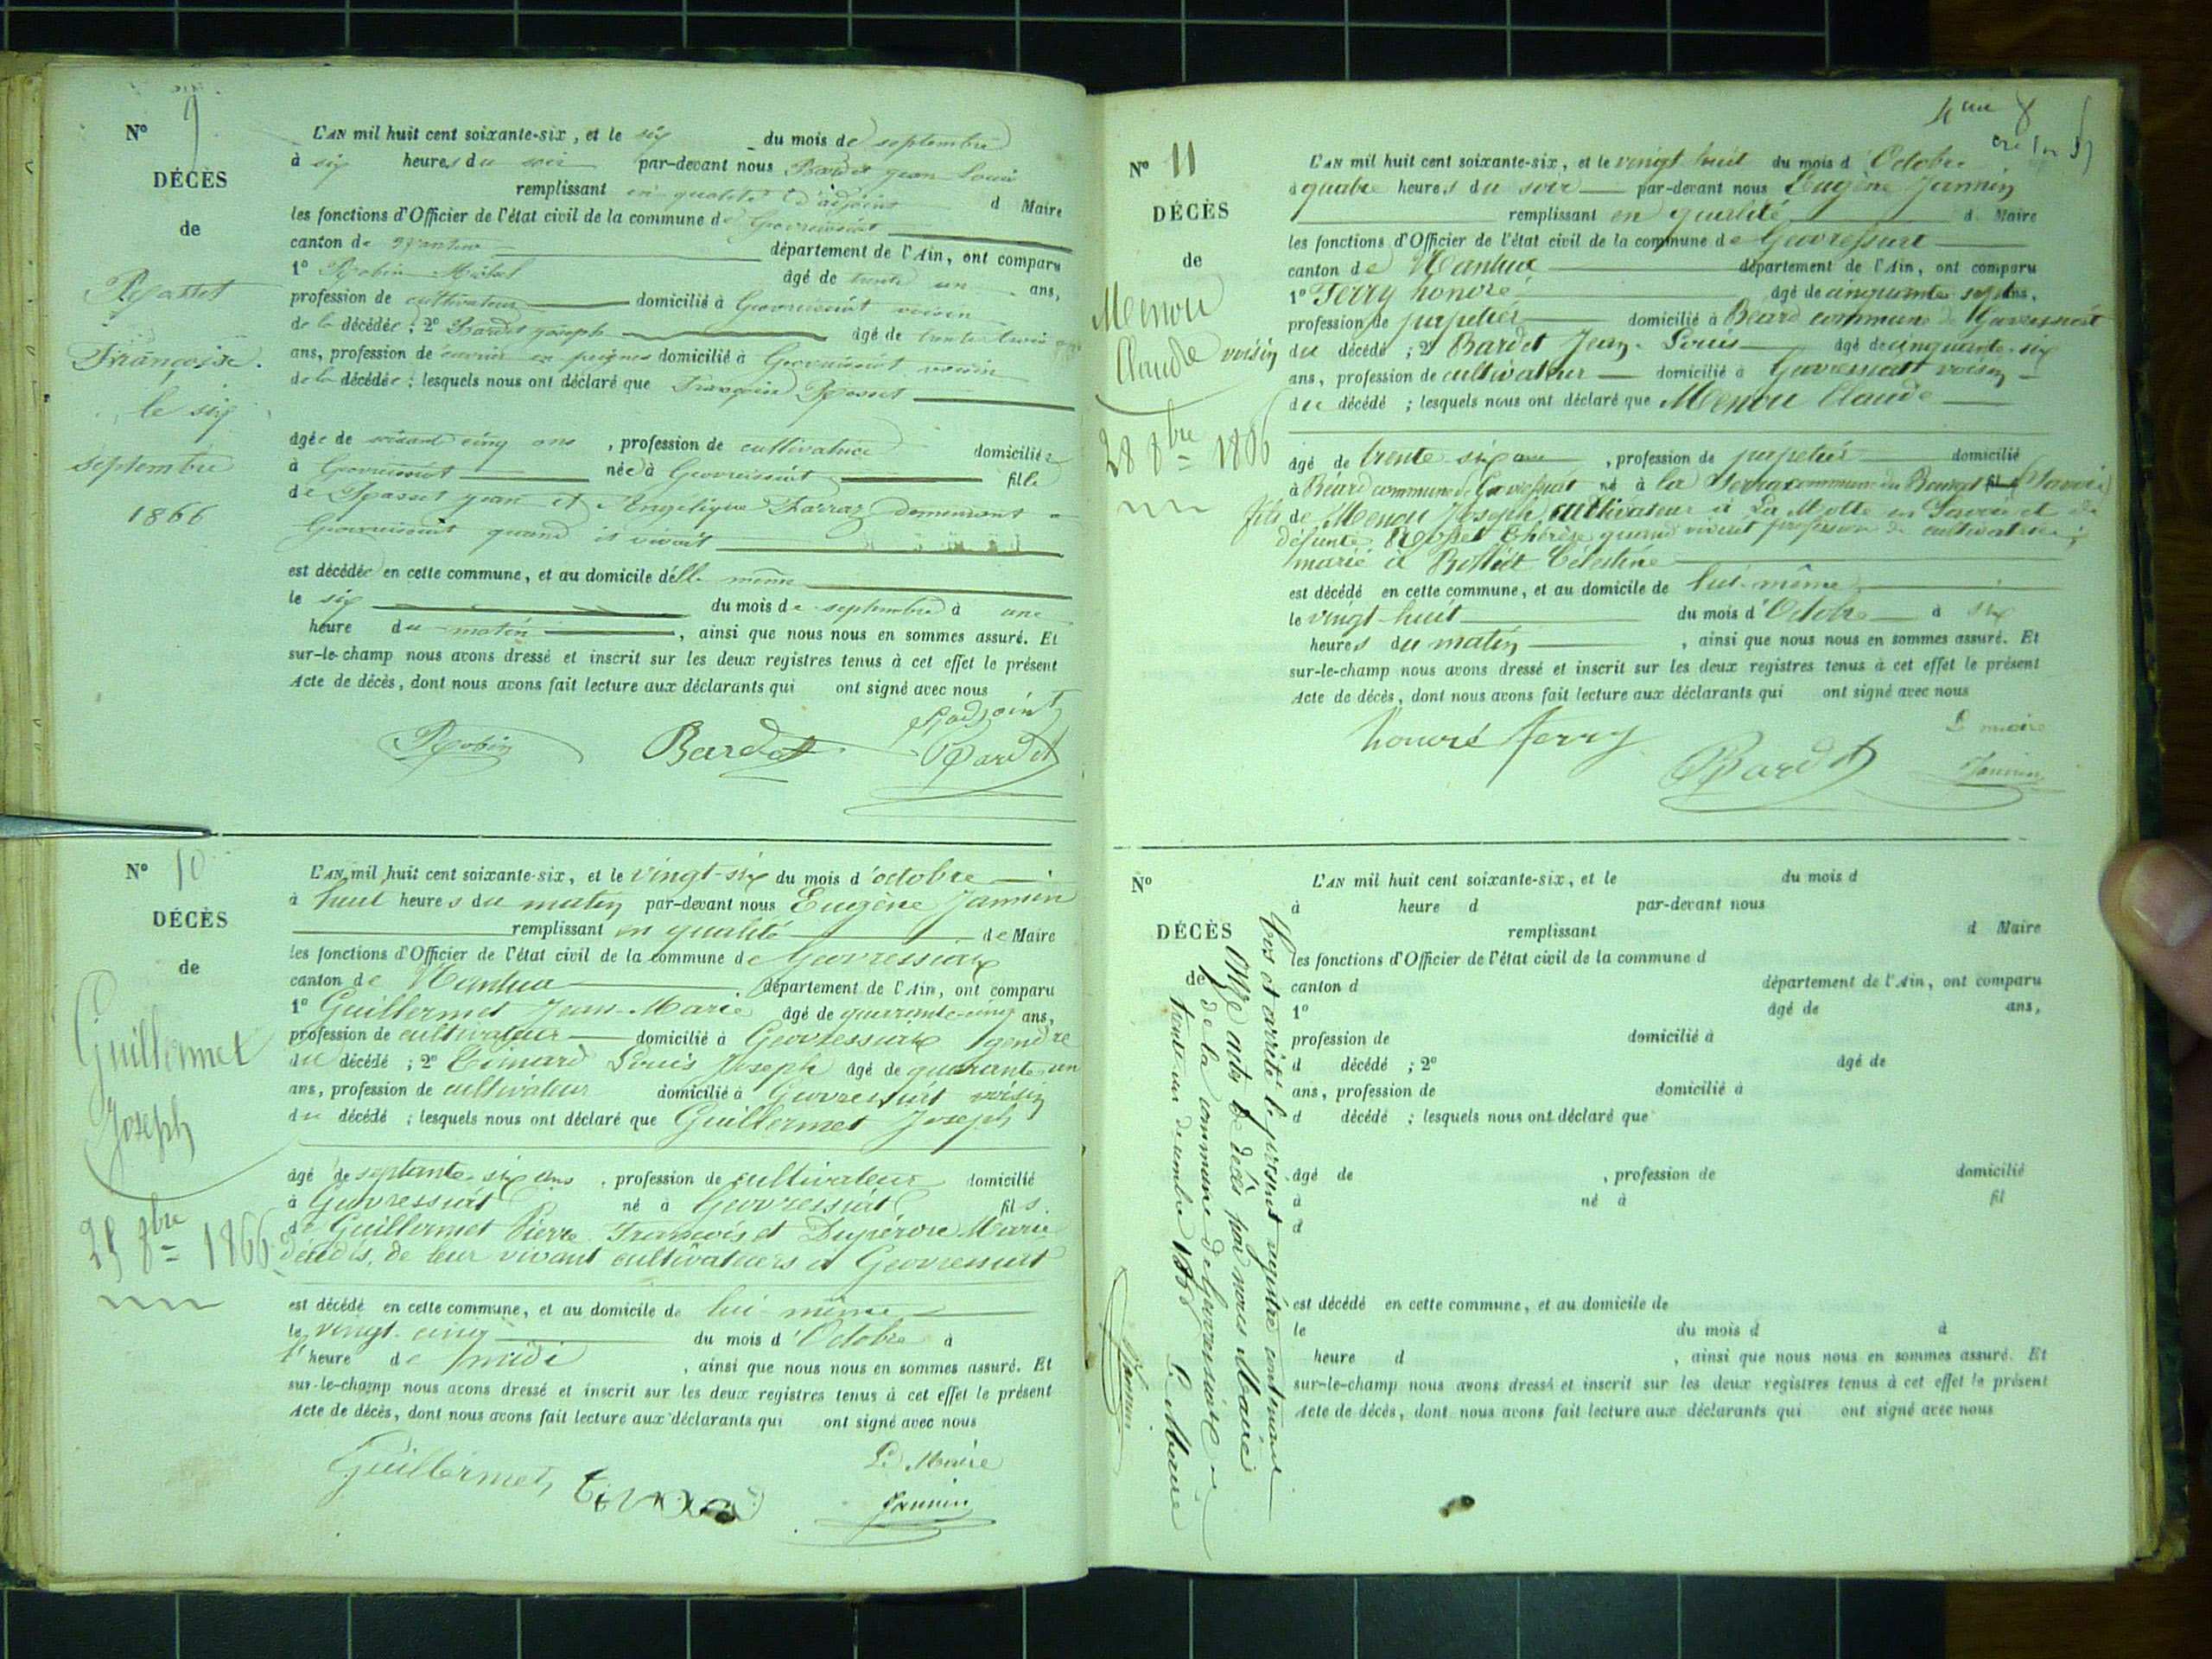 N° 9
DÉCÈS
de
Françoise
le six
septembre
1866
L'AN mil huit cent soixante-six, et le six du mois de septembre
à six heures du soir par-devant nous Bardet jean Louis
remplissant en qualité d'adjoint d Maire
les fonctions d'Officier de l'état civil de la commune de Geovressiat
canton de Nantua département de l'Ain, ont comparu
1° Robin Michel âgé de trente un ans,
profession de cultivateur domicilié à Geovressiat voisin
de la décédée ; 2° Bardet joseph âgé de trente trois ans
ans, profession de ouvrier en peignes domicilié à Geovressiat voisin
de la décédée ; lesquels nous ont déclaré que Françoise
âgée de soixante cinq ans, profession de cultivatrice domiciliée
à Geovressiat née à Geovressiat fille
de jean et Angélique demeurant a
Geovressiat quand il vivait
est décédée en cette commune, et au domicile d'elle même
le six du mois de septembre à une
heure du matin, ainsi que nous nous en sommes assuré. Et
sur-le-champ nous avons dressé et inscrit sur les deux registres tenus à cet effet le présent
Acte de décès, dont nous avons fait lecture aux déclarants qui ont signé avec nous
l'adjoint
Robin Bardet Bardet
N° 10
DÉCÈS
de
Guillermet
Joseph
25 8bre 1866
L'AN mil huit cent soixante-six, et le vingt-six du mois d'octobre
à huit heures du matin par-devant nous Eugène Jannin
remplissant en qualité de Maire
les fonctions d'Officier de l'état civil de la commune de Geovressiat
canton de Nantua département de l'Ain, ont comparu
1° Guillermet Jean-Marie âgé de quarante-cinq ans,
profession de cultivateur domicilié à Geovressiat gendre
du décédé ; 2° Louis Joseph âgé de quarante-un
ans, profession de cultivateur domicilié à Geovressiat voisin
du décédé ; lesquels nous ont déclaré que Guillermet Joseph
âgé de septante-six ans, profession de cultivateur domicilié
à Geovressiat né à Geovressiat fils.
de Guillermet Pierre François et Marie
décédés, de leur vivant cultivateurs à Geovressiat
est décédé en cette commune, et au domicile de lui-même
le vingt-cinq du mois d'Octobre à
l'heure de midi, ainsi que nous nous en sommes assuré. Et
sur-le-champ nous avons dressé et inscrit sur les deux registres tenus à cet effet le présent
Acte de décès, dont nous avons fait lecture aux déclarants qui ont signé avec nous
Le Maire
Guillermet Jannin
N° 11
DÉCÈS
de
Menou
Claude
28 8bre 1866
L'AN mil huit cent soixante-six, et le vingt huit du mois d'Octobre
à quatre heures du soir par-devant nous Eugène Jannin
remplissant en qualité d Maire
les fonctions d'Officier de l'état civil de la commune de Geovressiat
canton de Nantua département de l'Ain, ont comparu
1° Ferry honoré âgé de cinquante-sept ans,
profession de papetier domicilié à Béard commune de Geovressiat
voisin du décédé ; 2° Bardet Jean-Louis âgé de cinquante-six
ans, profession de cultivateur domicilié à Geovressiat voisin
du décédé ; lesquels nous ont déclaré que Menou Claude
âgé de trente-six ans, profession de papetier domicilié
à Béard commune de Geovressiat né à la commune du Bourget (Savoie)
fils de Menou Joseph cultivateur à La Motte en Savoie et de
défunte Thérèse quand vivait profession de cultivatrice ;
marié à Célestine
est décédé en cette commune, et au domicile de lui-même
le vingt-huit du mois d'Octobre à six
heures du matin, ainsi que nous nous en sommes assuré. Et
sur-le-champ nous avons dressé et inscrit sur les deux registres tenus à cet effet le présent
Acte de décès, dont nous avons fait lecture aux déclarants qui ont signé avec nous
Le maire
honoré ferry Bardet Jannin
N°
DÉCÈS
de
L'AN mil huit cent soixante-six, et le du mois d
à heure d par-devant nous
remplissant d Maire
les fonctions d'Officier de l'état civil de la commune d
canton d département de l'Ain, ont comparu
1° âgé de ans,
profession de domicilié à
d décédé ; 2° âgé de
ans, profession de domicilié à
d décédé ; lesquels nous ont déclaré que
âgé de , profession de domicilié
à né à fil
d
est décédé en cette commune, et au domicile de
le du mois d à
heure d , ainsi que nous nous en sommes assuré. Et
sur-le-champ nous avons dressé et inscrit sur les deux registres tenus à cet effet le présent
Acte de décès, dont nous avons fait lecture aux déclarants qui ont signé avec nous
Clos et arrêté le présent registre contenant
Onze actes de décès par nous Maire
de la commune de Geovressiat
trente-un décembre 1866 Le Maire
Jannin